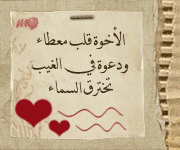 الأخوة قلب معطاء
ودعوة في الغيب
تخترق السماء